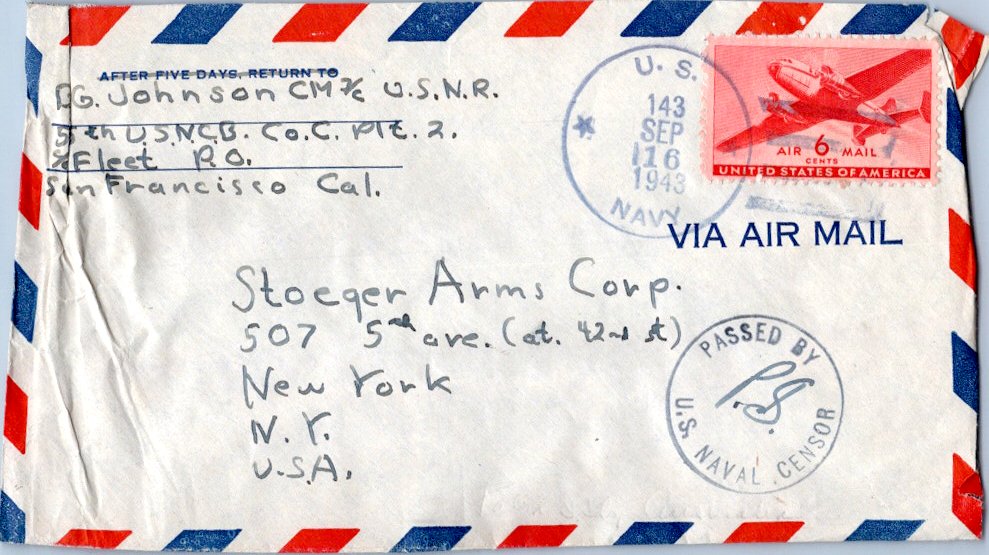 AFTER FIVE DAYS, RETURN TO
B.G. Johnson CM 3/c U.S.N.R.
5th U.S.N.C.B. Co.C. Plt. 2.
℅ Fleet P.O.
San Francisco Cal.
U. S.
143
SEP
16
1943
NAVY
AIR 6 MAIL
CENTS
UNITED STATES OF AMERICA
VIA AIR MAIL
Stoeger Arms Corp.
507 5th ave. (at. 42nd st)
New York
N.Y.
U.S.A.
PASSED BY
U.S. NAVAL CENSOR